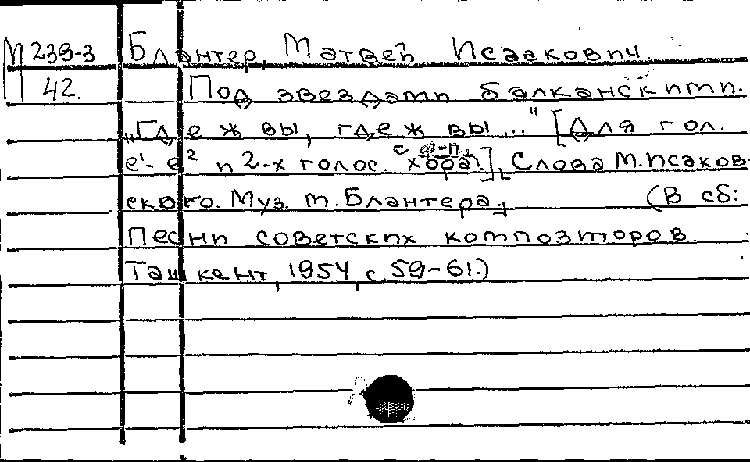 П 239-3 Блантер, Матвей Исаакович.
42. Под звездами балканскими.
„Где ж вы, где ж вы..." [Для гол.
e¹- e² и 2-х голос. хора с ф-п.], Слова М. Исаков-
ского. Муз. М. Блантера, (В сб:
Песни советских композиторов
Ташкент, 1954, с 59-61.)